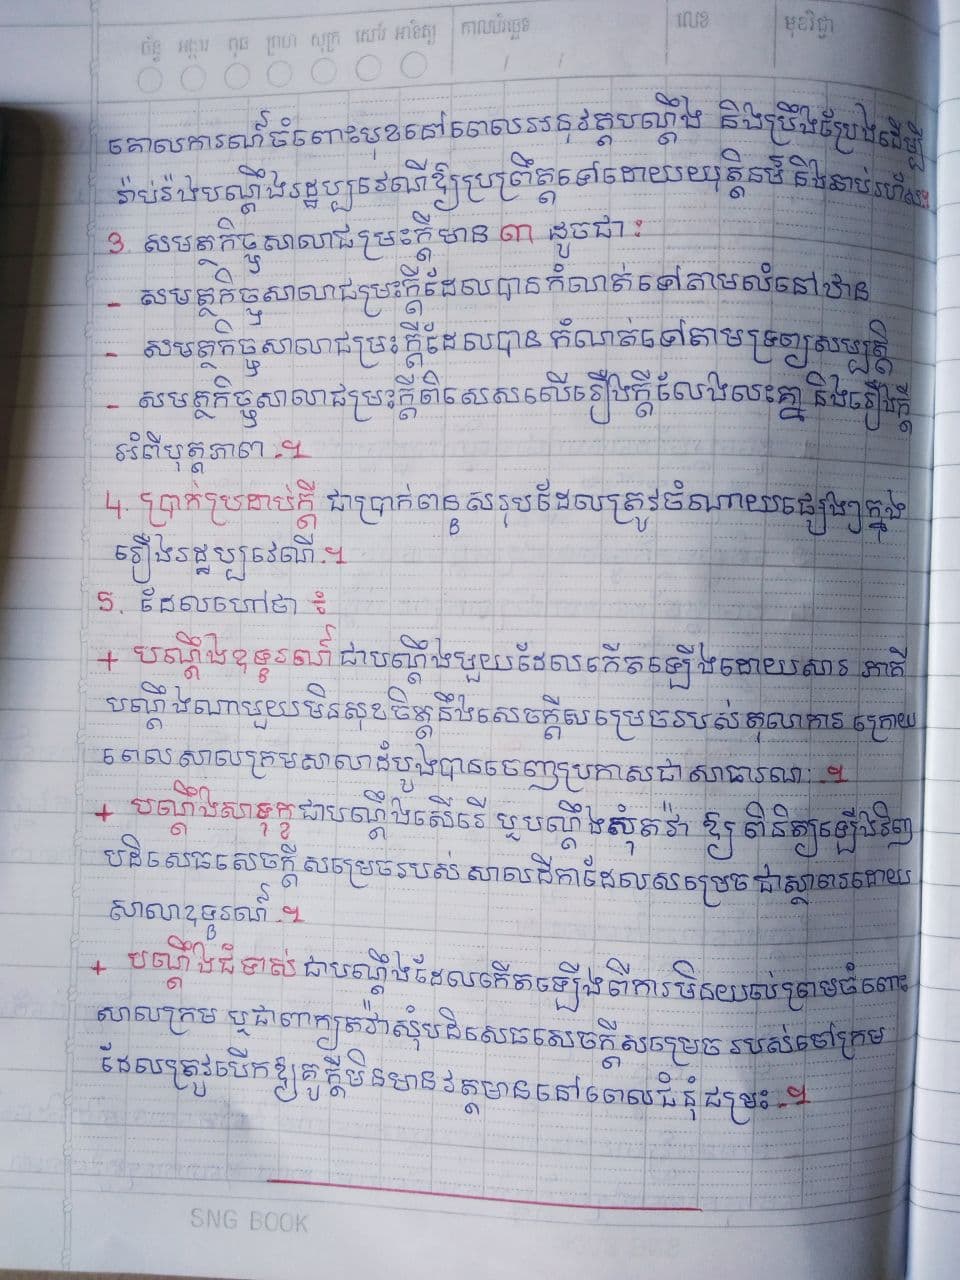 ច័ន្ទ អង្គារ ពុធ ព្រហ សុក្រ សៅរ៍ អាទិត្យ កាលបរិច្ឆេទ លេខ មុខវិជ្ជា
គោលការណ៍ចំពោះមុខនៅពេលអនុវត្តបណ្តឹង និងប្រឹងប្រែងដើម្បី
រ៉ាប់រ៉ងបណ្តឹងរដ្ឋប្បវេណីឱ្យប្រព្រឹត្តទៅដោយយុត្តិធម៌ និងឆាប់រហ័ស។
3. សមត្ថកិច្ចសាលាជម្រះក្តីមាន ៣ ដូចជា :
- សមត្ថកិច្ចសាលាជម្រះក្តីដែលបានកំណត់ទៅតាមលំនៅឋាន
- សមត្ថកិច្ចសាលាជម្រះក្តីដែលបានកំណត់ទៅតាមទ្រព្យសម្បត្តិ
- សមត្ថកិច្ចសាលាជម្រះក្តីពិសេសលើរឿងក្តីលែងលះគ្នា និងរឿងក្តី
អំពីបុត្តភាព .។
4. ប្រាក់ប្រដាប់ក្តី ជាប្រាក់ពន្ធសរុបដែលត្រូវចំណាយផ្សេងៗក្នុង
រឿងរដ្ឋប្បវេណី .។
5. ដែលហៅថា ៖
+ បណ្តឹងឧទ្ធរណ៍ ជាបណ្តឹងមួយដែលកើតឡើងដោយសារ ភាគី
បណ្តឹងណាមួយមិនសុខចិត្តនឹងសេចក្តីសម្រេចរបស់តុលាការ ក្រោយ
ពេលសាលក្រមសាលាដំបូងបានចេញប្រកាសជា សាធារណៈ .។
+ បណ្តឹងសាទុក្ខ ជាបណ្តឹងសើរើ ឬបណ្តឹងសុំតវ៉ា ឱ្យ ពិនិត្យឡើងវិញ
បដិសេធសេចក្តីសម្រេចរបស់ សាលដីកាដែលសម្រេច ជាស្ថាពរដោយ
សាលាឧទ្ធរណ៍ .។
+ បណ្តឹងជំទាស់ ជាបណ្តឹងដែលកើតឡើងពីការមិនយល់ព្រមចំពោះ
សាលក្រម ឬជាពាក្យតវ៉ាសុំបដិសេធសេចក្តីសម្រេច របស់ចៅក្រម
ដែលត្រូវបើកឱ្យគូក្តីមិនមានវត្តមាននៅពេលជំនុំជម្រះ .។
SNG BOOK